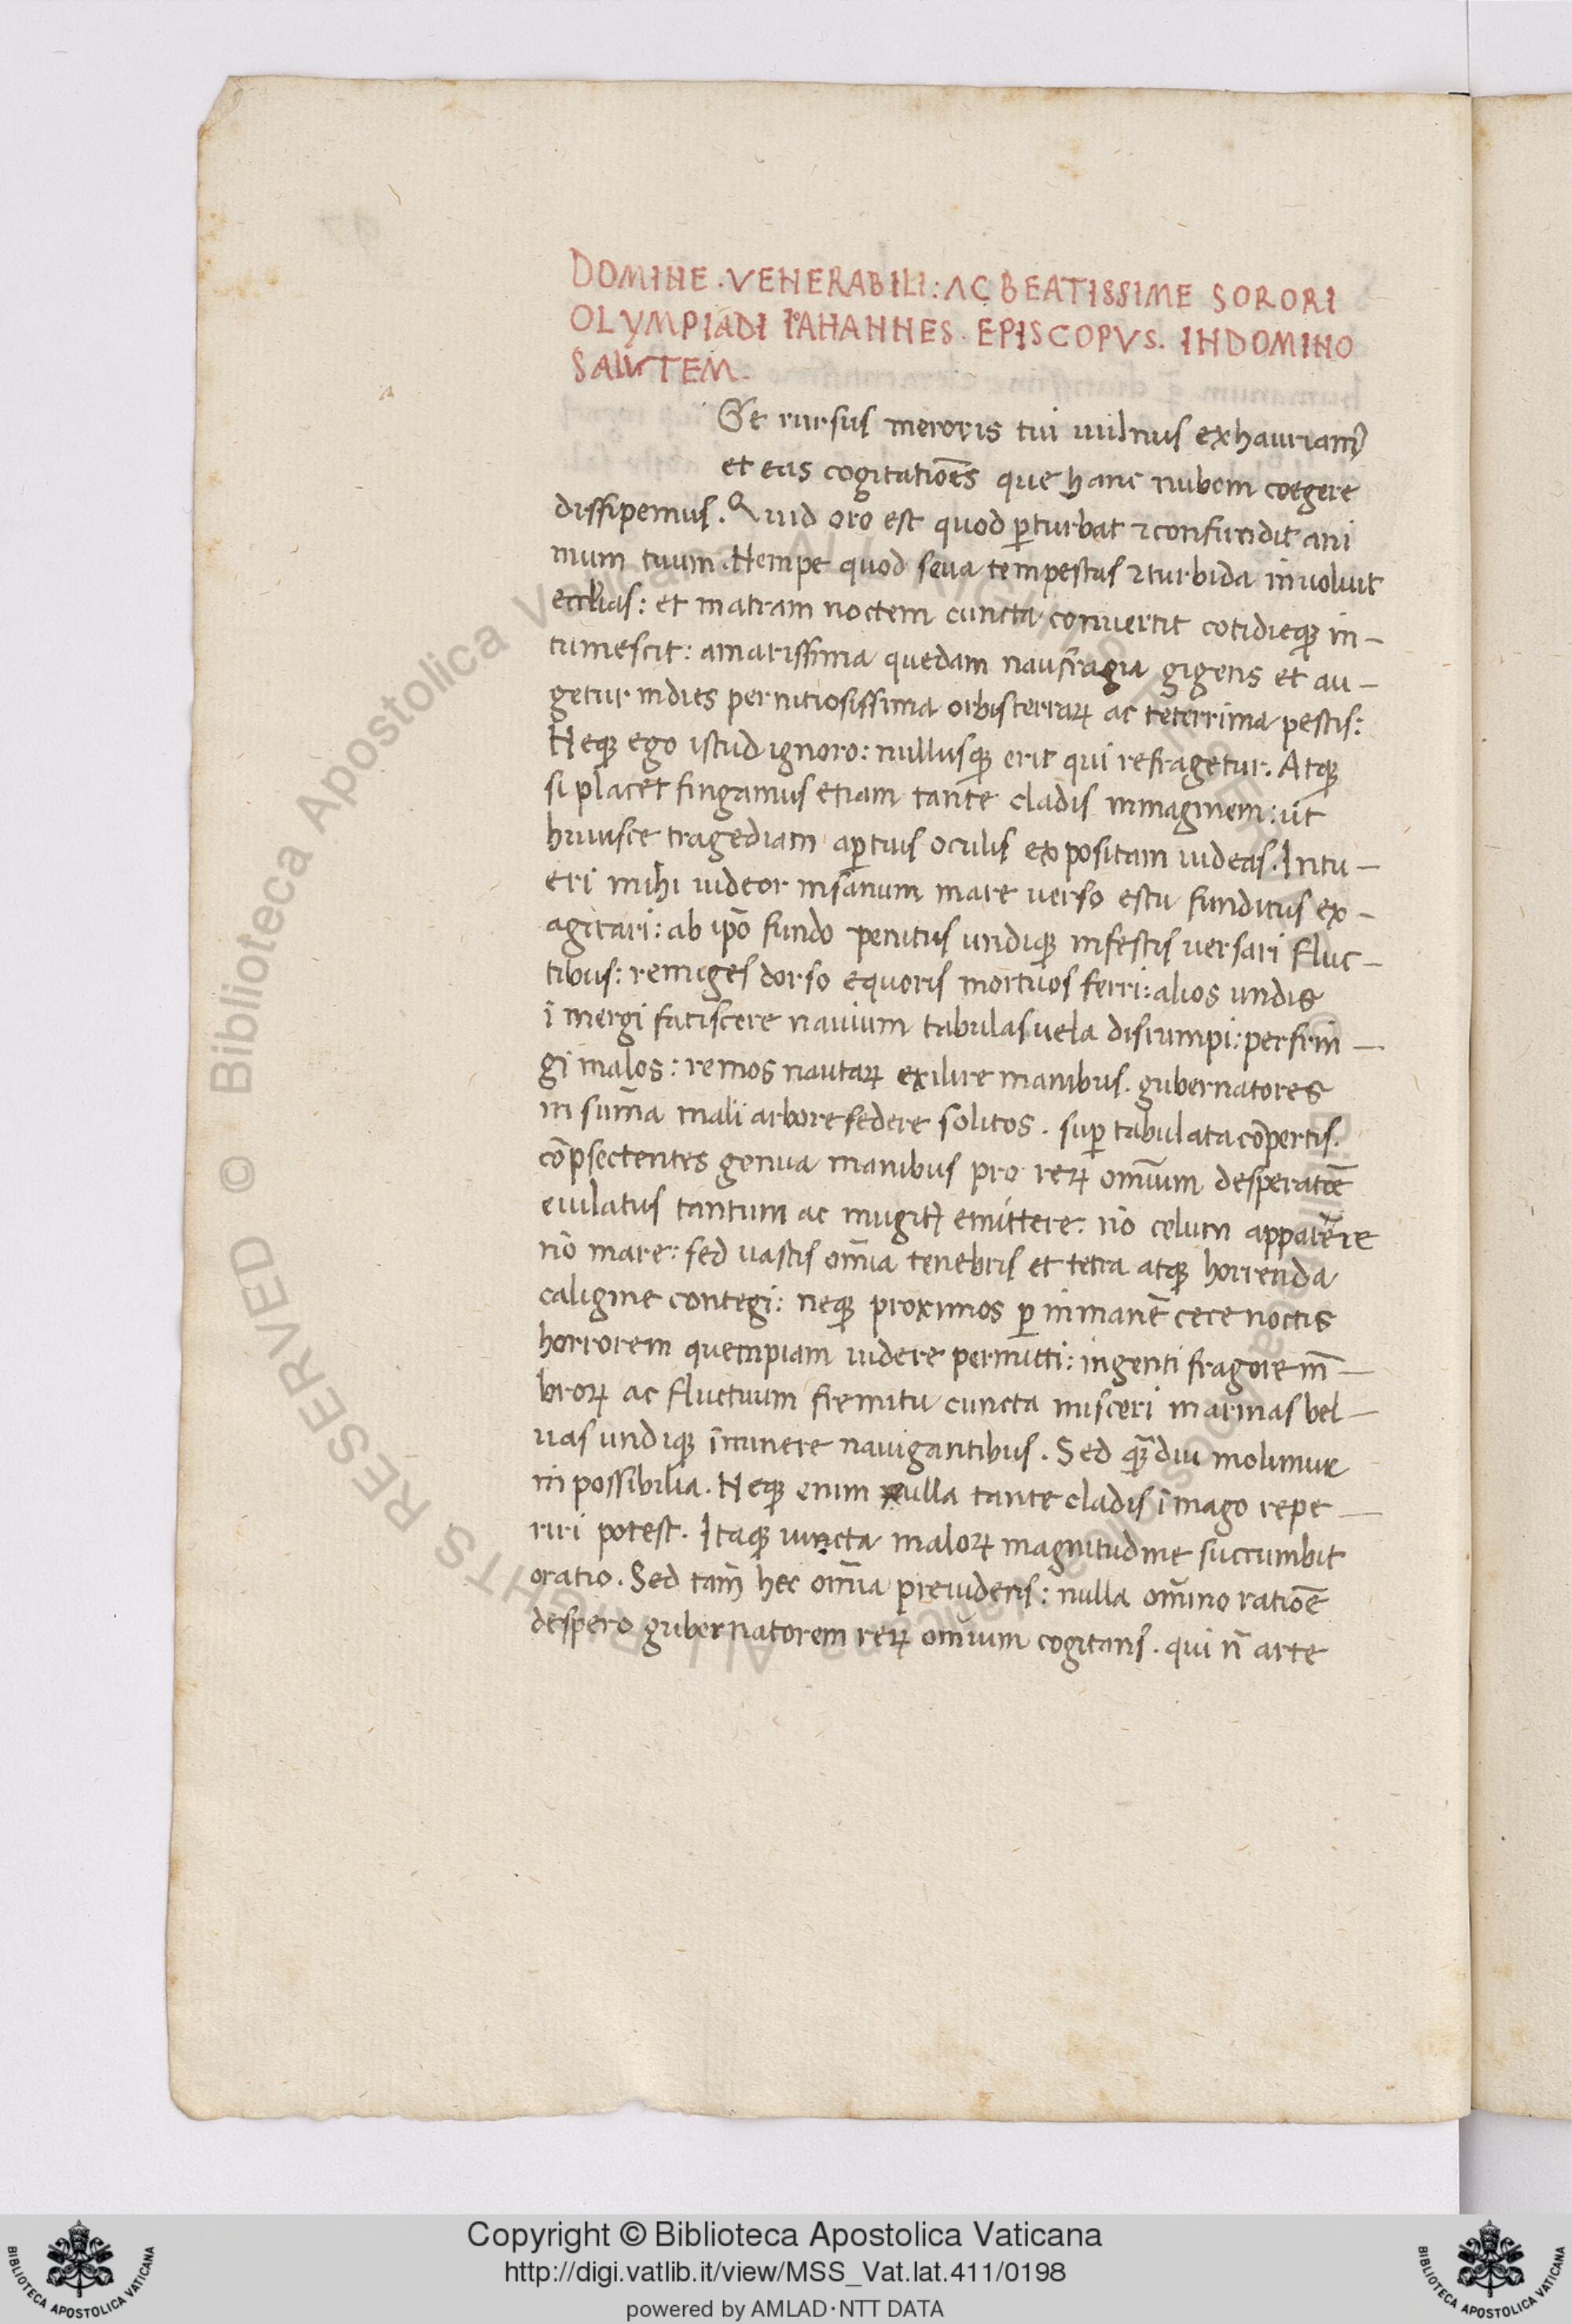 DOMINE . VENERABILI : AC BEATISSIME SORORI
OLYMPIADI IOAHANNES . EPISCOPVS . IN DOMINO
SALVTEM .
Et rursus meroris tui uulnus exhauriam
et eas cogitatiōēs que hanc nubem coegere
dissipemus . Quid oro est quod ꝑturbat ⁊ confundit ani
mum tuum . Nempe quod seua tempestas ⁊ turbida inuoluit
eccl̄ias : et in atram noctem cuncta conuertit cotidieqꝫ in -
tumescit : amarissima quedam naufragia gigens et au -
getur indies pernitiosissima orbisterraꝝ ac teterrima pestis :
Neqꝫ ego istud ignoro : nullusqꝫ erit qui refragetur . Atqꝫ
si placet fingamus etiam tante cladis inmaginem : ut
huiusce tragediam aꝑtius oculis expositam uideas . Intu -
eri mihi uideor insanum mare uerso estu funditus ex -
agitari : ab ip̄o fundo penitus undiqꝫ infestis uersari fluc -
tibus : remiges dorso equoris mortuos ferri : alios undis
ī mergi fatiscere nauium tabulas uela disrumpi : perfrin -
gi malos : remos nautaꝝ exilire manibus . gubernatores
in sum̄a mali arbore sedere solitos . suꝑ tabulata cōpertis .
cōpsectentes genua manibus pro reꝝ om̄ium desperatiōē
eiulatus tantum ac mugitꝰ emittere : nō celum apparere
nō mare : sed uastis om̄ia tenebris et tetra atqꝫ horrenda
caligine contegi : neqꝫ proximos ꝑ inmanē cece noctis
horrorem quempiam uidere permitti : ingenti fragore m̄ -
broꝝ ac fluctuum fremitu cuncta misceri marinas bel -
uas undiqꝫ īminere nauigantibus . Sed qꝫ̄diu molimur
in possibilia . Neqꝫ enim ulla tante cladis īmago repe -
riri potest . Itaqꝫ iuncta maloꝝ magnitudine succumbit
oratio . Sed tam̄ hec om̄ia preuidens : nulla om̄ino ratiōē
despero gubernatorem reꝝ om̄ium cogitans . qui n̄ arte
Copyright © Biblioteca Apostolica Vaticana
http://digi.vatlib.it/view/MSS_Vat.lat.411/0198
powered by AMLAD·NTT DATA